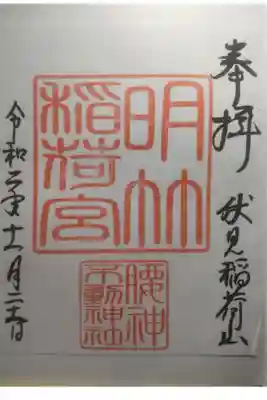 奉拝
伏見稲荷山
明竹
稲荷宮
腰神
不動神社
令和二年十一月二十日